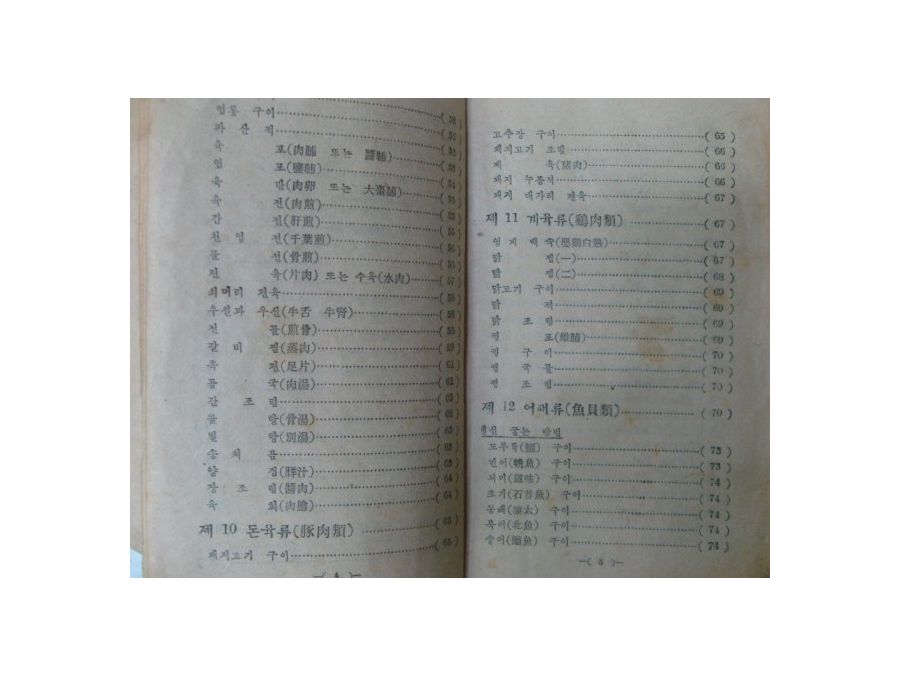 염통 구이 ( 52 )
파 산 적 ( 51 )
육 포(肉脯 또는 醬脯) ( 52 )
염 포(鹽脯) ( 53 )
육 란(肉卵 또는 大棗脯) ( 54 )
육 전(肉煎) ( 55 )
간 전(肝煎) ( 55 )
천 엽 전(千葉煎) ( 56 )
골 전(骨煎) ( 56 )
편 육(片肉) 또는 수육(水肉) ( 57 )
쇠머리 편육 ( 58 )
우설과 우신(牛舌 牛腎) ( 58 )
전 골(煎骨) ( 58 )
갈 비 찜(蒸肉) ( 59 )
족 편(足片) ( 61 )
곰 국(肉湯) ( 61 )
간 조 림 ( 62 )
골 탕(骨湯)
별 탕(別湯) ( 63 )
송 치 곰 ( 63 )
양 즙(胖汁) ( 64 )
장 조 림(醬肉) ( 64 )
육 회(肉膾) ( 64 )
제 10 돈육류(豚肉類) ( 65 )
돼지고기 구이 ( 65 )
고추장 구이 ( 65 )
돼지고기 조림 ( 66 )
제 육(猪肉) ( 66 )
돼지 누름적 ( 66 )
돼지 대가리 편육 ( 67 )
제 11 계육류(鷄肉類) ( 67 )
영 계 백 숙(嬰鷄白熟) ( 67 )
닭 찜(一) ( 67 )
닭 찜(二) ( 68 )
닭고기 구이 ( 69 )
닭 저 ( 69 )
닭 조 림 ( 69 )
꿩 포(雉脯) ( 69 )
꿩 구 이 ( 70 )
꿩 국 물 ( 70 )
꿩 조 림 ( 70 )
제 12 어패류(魚貝類) ( 70 )
생선 굽는 방법
도루묵 구이 ( 73 )
민어 구이 ( 73 )
되미(道味) 구이 ( 74 )
조기(石首魚) 구이 ( 74 )
동태(凍太) 구이 ( 74 )
북어(北魚) 구이 ( 74 )
숭어(鯔魚) 구이
—( 4 )—
—( 5 )—